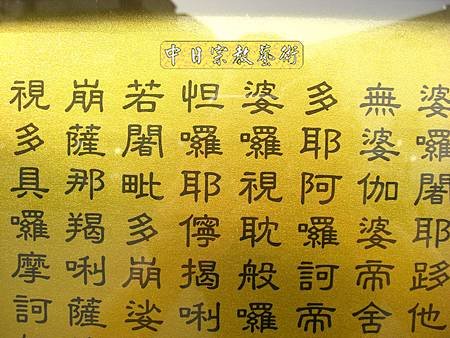 中日宗教藝術
婆囉闍耶跢他
無婆伽婆帝舍
多耶阿囉訶帝
婆囉視耽般囉
怛囉耶儜揭唎
若闍毗多崩娑
崩薩那羯唎薩
視多具囉摩訶